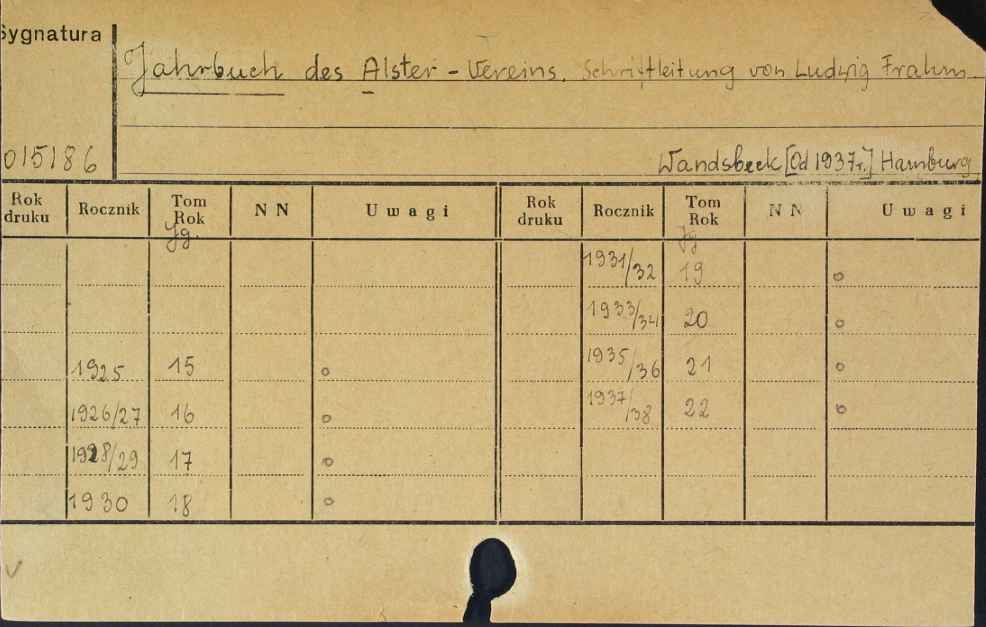 Sygnatura
Jahrbuch des Alster-Vereins. Schriftleitung von Ludwig Frahm.
015186
Wandsbeck [Od 1937r.] Hamburg
Rok druku Rocznik Tom Rok Jg. NN Uwagi Rok druku Rocznik Tom Rok Jg NN Uwagi
1931/32 19 o
1933/34 20 o
1925 15 o 1935/36 21 o
1926/27 16 o 1937/38 22 o
1928/29 17 o
1930 18 o